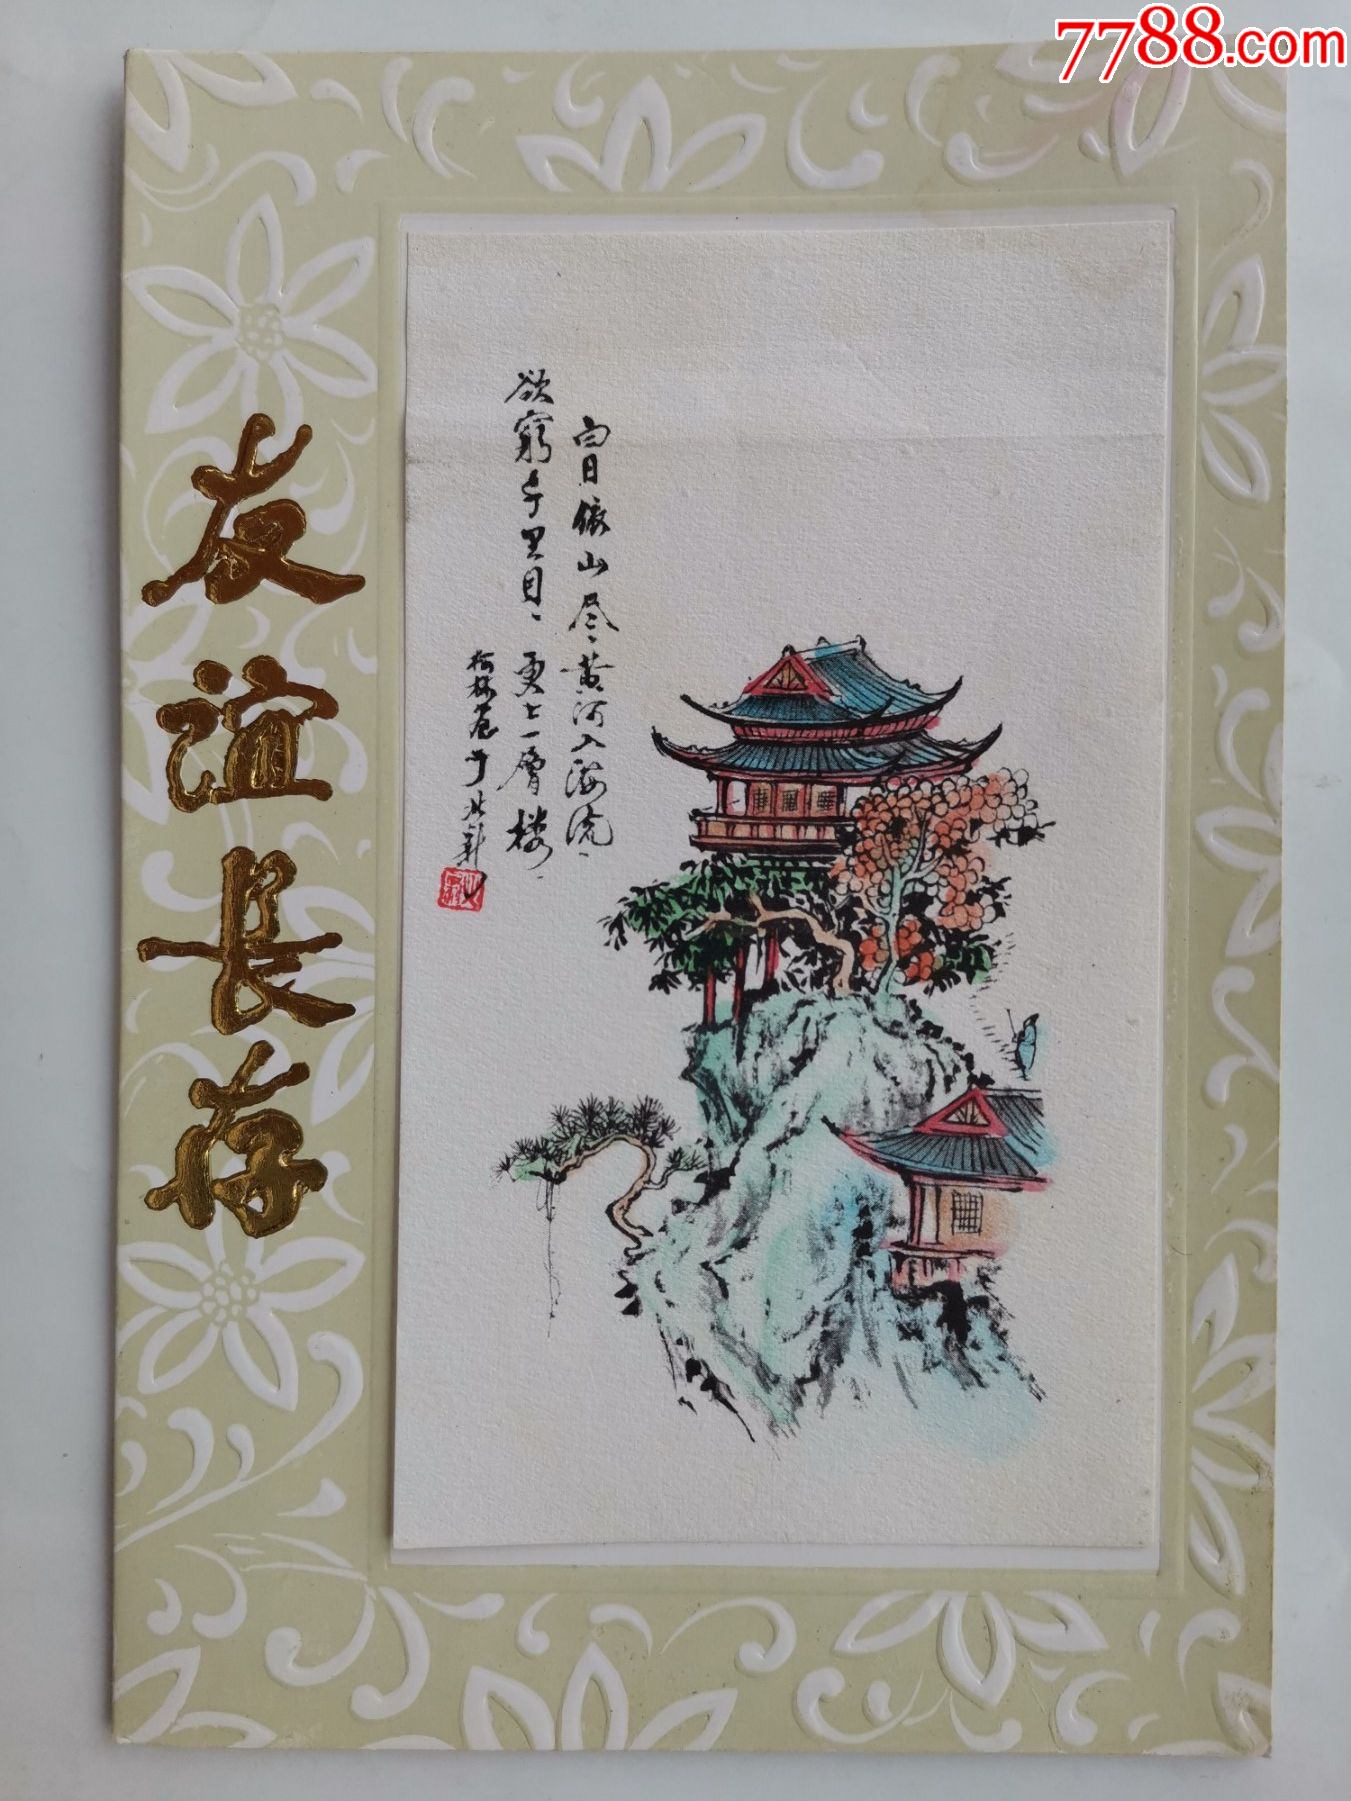 7788.com
友谊長存
白日依山尽黄河入海流
欲窮千里目更上一層楼